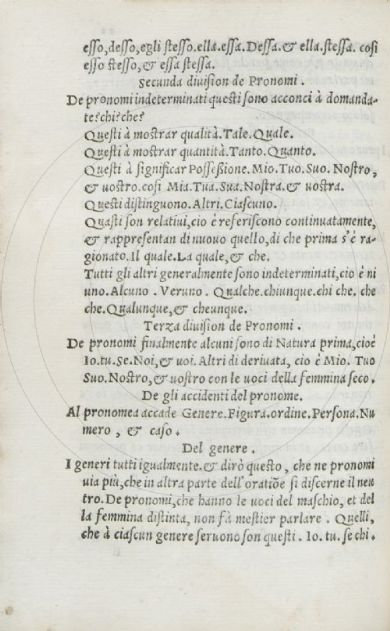 esso, desso, egli stesso. ella. essa. Dessa. & ella. stessa. cosi
esso stesso, & essa stessa.
Secunda division de Pronomi.
De pronomi indeterminati questi sono acconci à domanda-
te? chi? che?
Questi à mostrar qualità. Tale. Quale.
Questi à mostrar quantità. Tanto. Quanto.
Questi à significar Possessione. Mio. Tuo. Suo. Nostro,
& vostro. cosi Mia. Tua. Sua. Nostra. & vostra.
Questi distinguono. Altri. Ciascuno.
Quasti son relativi, cio è referiscono continuatamente,
& rappresentan di nuouo quello, di che prima s'è ra-
gionato. Il quale. La quale, & che.
Tutti gli altri generalmente sono indeterminati, cio è ni
uno. Alcuno. Veruno. Qualche. chiunque. chi che. che
che. Qualunque, & cheunque.
Terza division de Pronomi.
De pronomi finalmente alcuni sono di Natura prima, cioè
Io. tu. Se. Noi, & uoi. Altri di deriuata, cio è Mio. Tuo
Suo. Nostro, & uostro con le uoci della femmina seco.
De gli accidenti del pronome.
Al pronomea accade Genere. Figura. ordine. Persona. Nu
mero, & caso.
Del genere.
I generi tutti igualmente. & dirò questo, che ne pronomi
uia più, che in altra parte dell'oratiõe si discerne il neu
tro. De pronomi, che hanno le uoci del maschio, et del
la femmina distinta, non fà mestier parlare. Quelli,
che à ciascun genere seruono son questi. Io. tu. se chi.